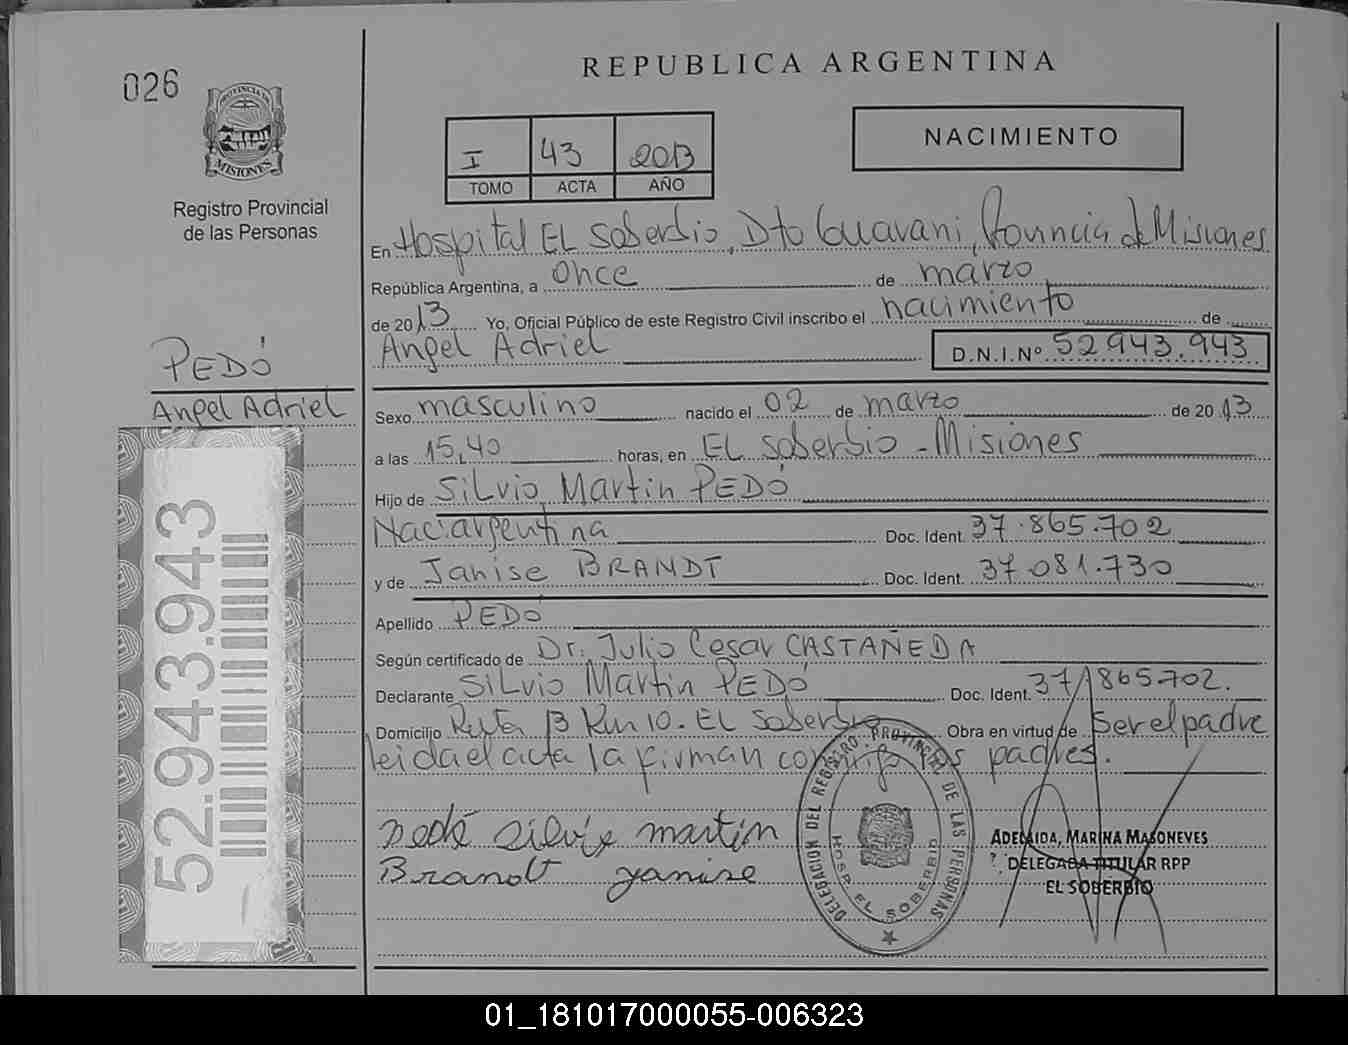 026
PROVINCIA DE
MISIONES
Registro Provincial
de las Personas
PEDÓ
Angel Adriel
52.943.943
REPUBLICA ARGENTINA
I 43 2013
TOMO ACTA AÑO
NACIMIENTO
En Hospital EL Soberbio, Dto Guarani, Provincia de Misiones
República Argentina, a once de marzo
de 2013 Yo, Oficial Público de este Registro Civil inscribo el nacimiento de
Angel Adriel D.N.I.Nº 52.943.943
Sexo masculino nacido el 02 de marzo de 2013
a las 15,40 horas, en EL Soberbio - Misiones
Hijo de Silvio Martin PEDÓ
Nac: argentina Doc. Ident. 37.865.702
y de Janise BRANDT Doc. Ident. 37.081.730
Apellido PEDÓ
Según certificado de Dr. Julio Cesar CASTAÑEDA
Declarante Silvio Martin PEDÓ Doc. Ident. 37.865.702.
Domicilio Ruta 13 Km 10. EL Soberbio Obra en virtud de Ser el padre
leida el acta la firman conmigo los padres.
Pedó silvio martin
Brandt yanise
DELEGACION DEL REGISTRO PROVINCIAL DE LAS PERSONAS
HOSP. EL SOBERBIO
ADELAIDA, MARINA MASONEVES
DELEGADA TITULAR RPP
EL SOBERBIO
01_181017000055-006323